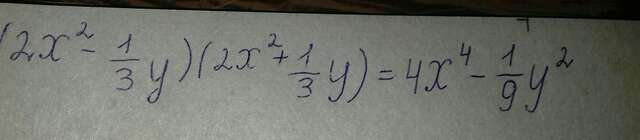 (2x² - 1/3 y)(2x² + 1/3 y) = 4x⁴ - 1/9 y²